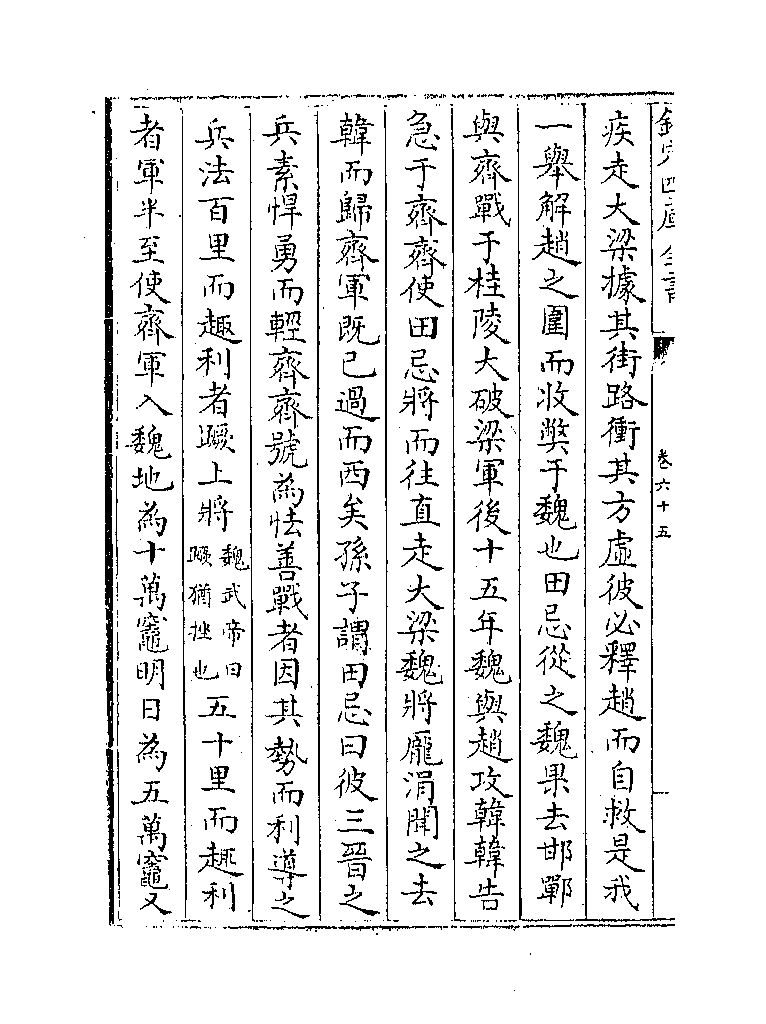 欽定四庫全書
卷六十五
疾走大梁據其街路衝其方虛彼必釋趙而自救是我
一舉解趙之圍而收獘于魏也田忌從之魏果去邯鄲
與齊戰于桂陵大破梁軍後十五年魏與趙攻韓韓告
急于齊齊使田忌將而往直走大梁魏將龐涓聞之去
韓而歸齊軍既已過而西矣孫子謂田忌曰彼三晉之
兵素悍勇而輕齊齊號為怯善戰者因其勢而利導之
兵法百里而趣利者蹶上將魏武帝曰蹶猶挫也五十里而趣利
者軍半至使齊軍入魏地為十萬竈明日為五萬竈又